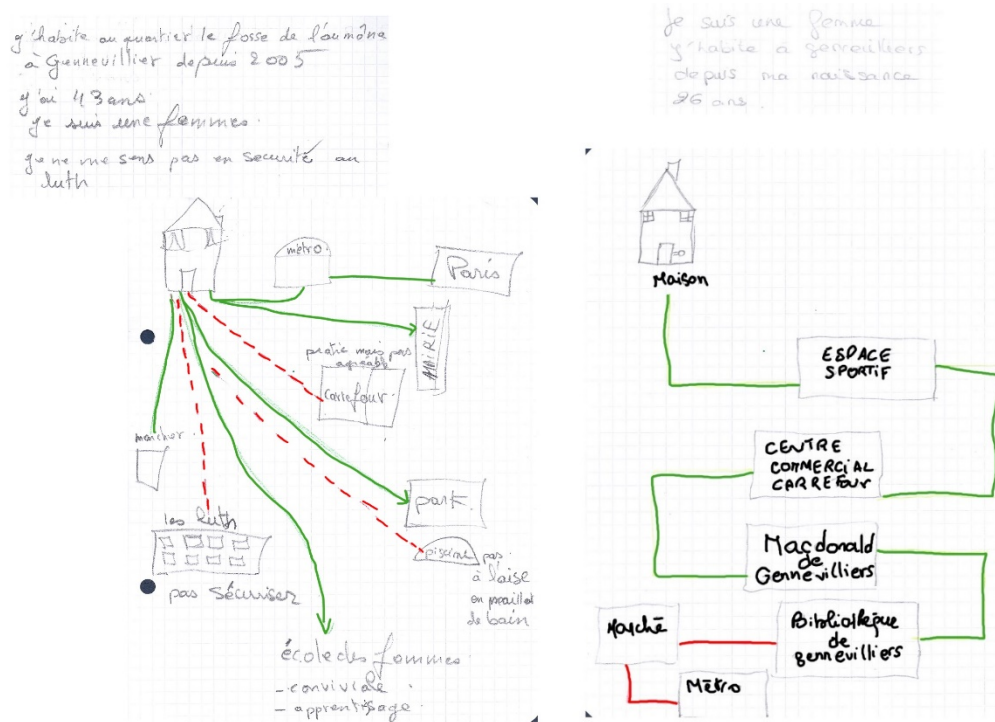 j'habite au quartier le fosse de l'aumône
à Gennevillier depuis 2005
j'ai 43 ans.
je suis une femmes.
je ne me sens pas en securité au
luth
métro.
Paris
MAIRIE
pratic mais pas
agreabl
Carrefour.
marcher.
park.
les luth
pas sécuriser
piscine pas
à l'aise
en maillot
de bain
école des femmes.
- conviviale.
- apprentisage.
Je suis une femme
j'habite à gennevilliers
depuis ma naissance
26 ans.
Maison
ESPACE
SPORTIF
CENTRE
COMMERCIAL
CARREFOUR
Macdonald
de
Gennevilliers
Bibliothèque
de
gennevilliers
Marché
Métro